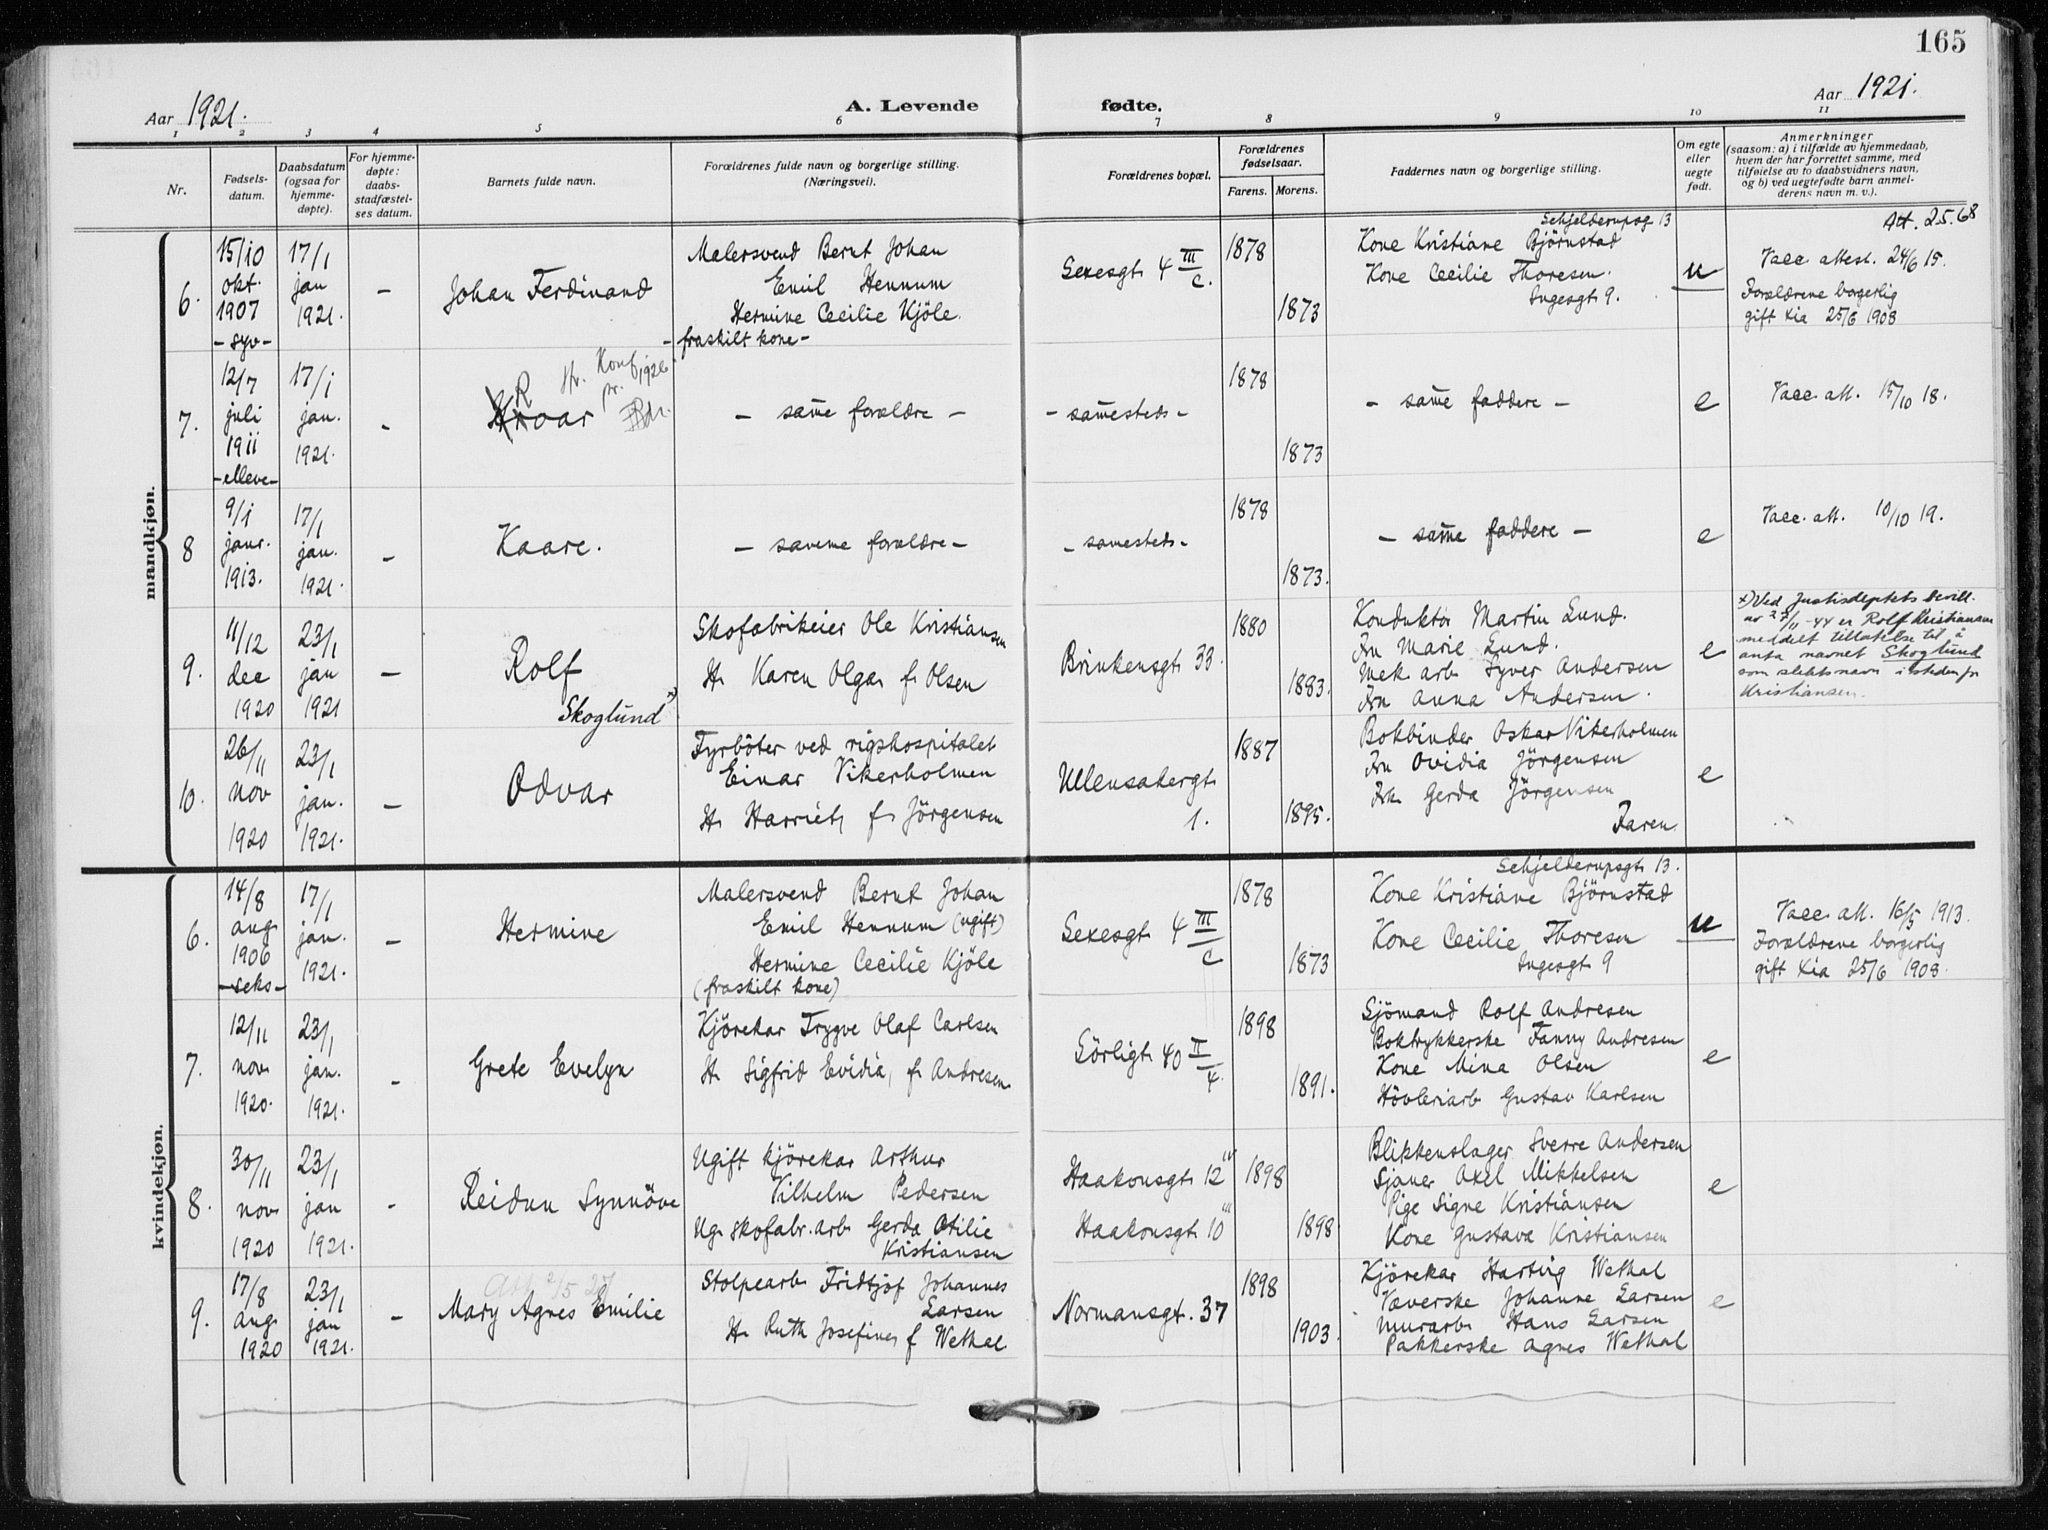 165
Aar 1921.
A. Levende fødte.
Aar 1921.
1 2 3 4 5 6 7 8 9 10 11
Nr.
Fødsels-
datum.
Daabsdatum
(ogsaa for
hjemme-
døpte).
For hjemme-
døpte:
daabs-
stadfæstel-
ses datum.
Barnets fulde navn.
Forældrenes fulde navn og borgerlige stilling.
(Næringsvei).
Forældrenes bopæl.
Forældrenes
fødselsaar.
Farens. Morens.
Faddernes navn og borgerlige stilling.
Om egte
eller
uegte
født.
Anmerkninger
(saasom: a) i tilfælde av hjemmedaab,
hvem der har forrettet samme, med
tilføielse av to daabsvidners navn,
og b) ved uegtefødte barn anmel-
derens navn m. v.).
mandkjøn.
6.
15/10
okt.
1907
- syv -
17/1
jan
1921.
-
Johan Ferdinand
Malersvend Bernt Johan
Emil Hennum
Hermine Cecilie Kjöle
- fraskilt kone -
Sexesgt 4 III/c.
1878
1873
Schjelderupsg 13
Kone Kristiane Björnstad
Kone Cecilie Thoresen.
Ingesgt 9.
u
Att. 2.5.68
Vacc attest. 24/6 15.
Forældrene borgerlig
gift Kia 25/6 1908
7.
12/7
juli
1911
- elleve -
17/1
jan.
1921.
-
R
Kroar
Konf.
1926
- samme forældre -
- samesteds -
1878
1873
- samme faddere -
e
Vacc. att. 15/10 18.
8
9/1
janr.
1913.
17/1
jan.
1921.
-
Kaare.
- samme forældre -
- samesteds -
1878
1873.
- samme faddere -
e
Vacc. att. 10/10 19.
9.
11/12
dec
1920
23/1
jan
1921
-
Rolf
Skoglund x)
Skofabrikeier Ole Kristiansen
H. Karen Olga f. Olsen
Brinkensgt 33.
1880
1883.
Konduktör Martin Lund.
Fru Marie Lund.
Mek arb Syver Andersen
Fru Anna Andersen.
e
x) Ved Justisdeptets bevill.
av 27/11-44 er Rolf Kristiansen
meddelt tillatelse til å
anta navnet Skoglund
som slektsnavn isteden for
Kristiansen.
10.
26/11
nov
1920
23/1
jan.
1921.
-
Odvar
Fyrböter ved rigshospitalet
Einar Vikerholmen
H. Harriet f. Jörgensen
Ullensakergt
1.
1887
1895.
Bokbinder Oskar Vikerholmen
Fru Ovidia Jörgensen
Frk. Gerda Jörgensen
Faren
e
kvindekjøn.
6.
14/8
aug
1906
- seks -
17/1
jan.
1921.
-
Hermine
Malersvend Bernt Johan
Emil Hennum (ugift)
Hermine Cecilie Kjöle
(fraskilt kone)
Sexesgt 4 III/c
1878
1873
Schjelderupsgt 13.
Kone Kristiane Björnstad
Kone Cecilie Thoresen
Ingesgt 9
u
Vacc. att. 16/5 1913.
Forældrene borgerlig
gift Kia 25/6 1908.
7.
12/11
nov
1920.
23/1
jan.
1921.
-
Grete Evelyn
Kjörekar Trygve Olaf Carlsen
H. Sigfrid Evidia, f. Andresen
Sörligt 40 II/4.
1898
1891.
Sjömand Rolf Andresen
Boktrykkerske Fanny Andresen
Kone Mina Olsen
Hövleriarb Gustav Karlsen
e
8.
30/11
nov
1920
23/1
jan
1921.
-
Reidun Synnöve
Ugift kjörekar Arthur
Vilhelm Pedersen
Ug. skofabr. arb Gerda Otilie
Kristiansen
Haakonsgt 12 IV
Haakonsgt 10 III
1898
1898
Blikkenslager Sverre Andersen
Sjauer Axel Mikkelsen
Pige Signe Kristiansen
Kone Gustava Kristiansen
e
9.
17/8
aug
1920
23/1
jan
1921.
-
Mary Agnes Emilie
Stolpearb Fridtjof Johannes
Larsen
H. Ruth Josefine f Wethal
Normansgt. 37
1898
1903.
Kjörekar Hartvig Wethal
Væverske Johanne Larsen
Murarb Hans Larsen
Pakkerske Agnes Wethal
e